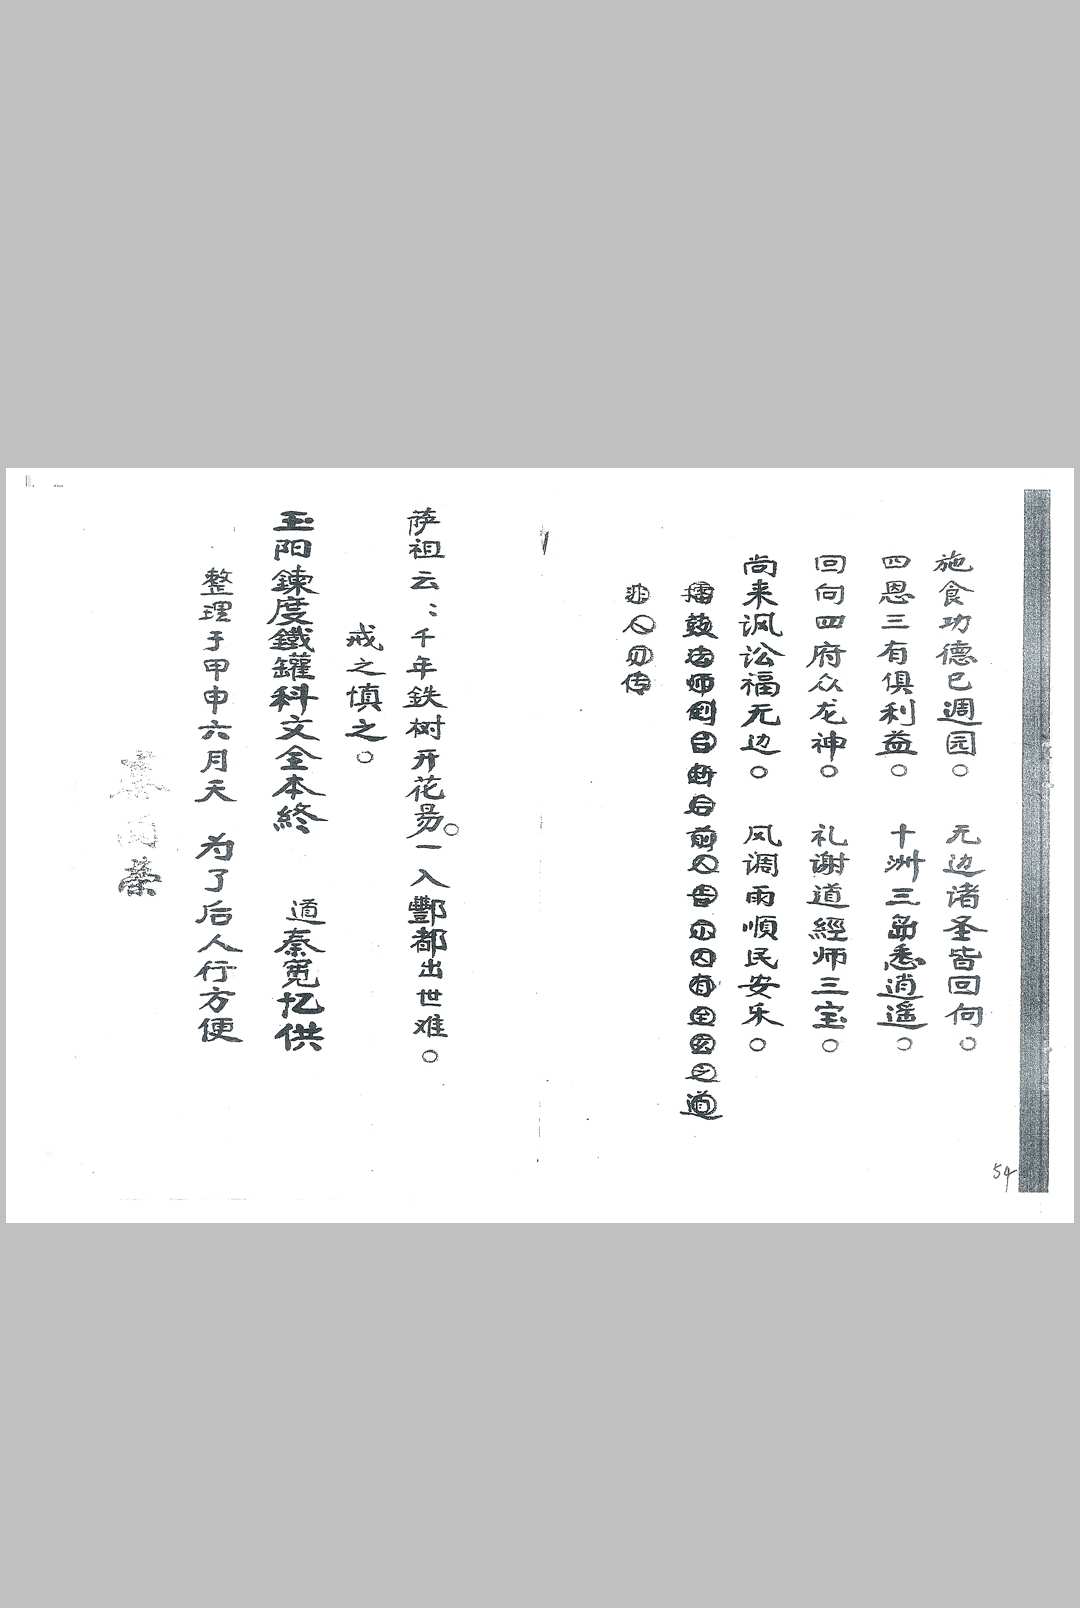 施食功德已週园。 无边诸圣皆回向。
四恩三有俱利益。 十洲三岛悉逍遥。
回向四府众龙神。 礼谢道經师三宝。
尚来讽讼福无边。 风调雨順民安乐。
擂鼓法师到台 后前人告 内有 玄之道
非人勿传
萨祖云：千年鉄树开花易。一入酆都出世难。
戒之慎之。
玉阳鍊度鐵罐科文全本終 道秦 忆供
整理于甲申六月天 为了后人行方便
荣
54